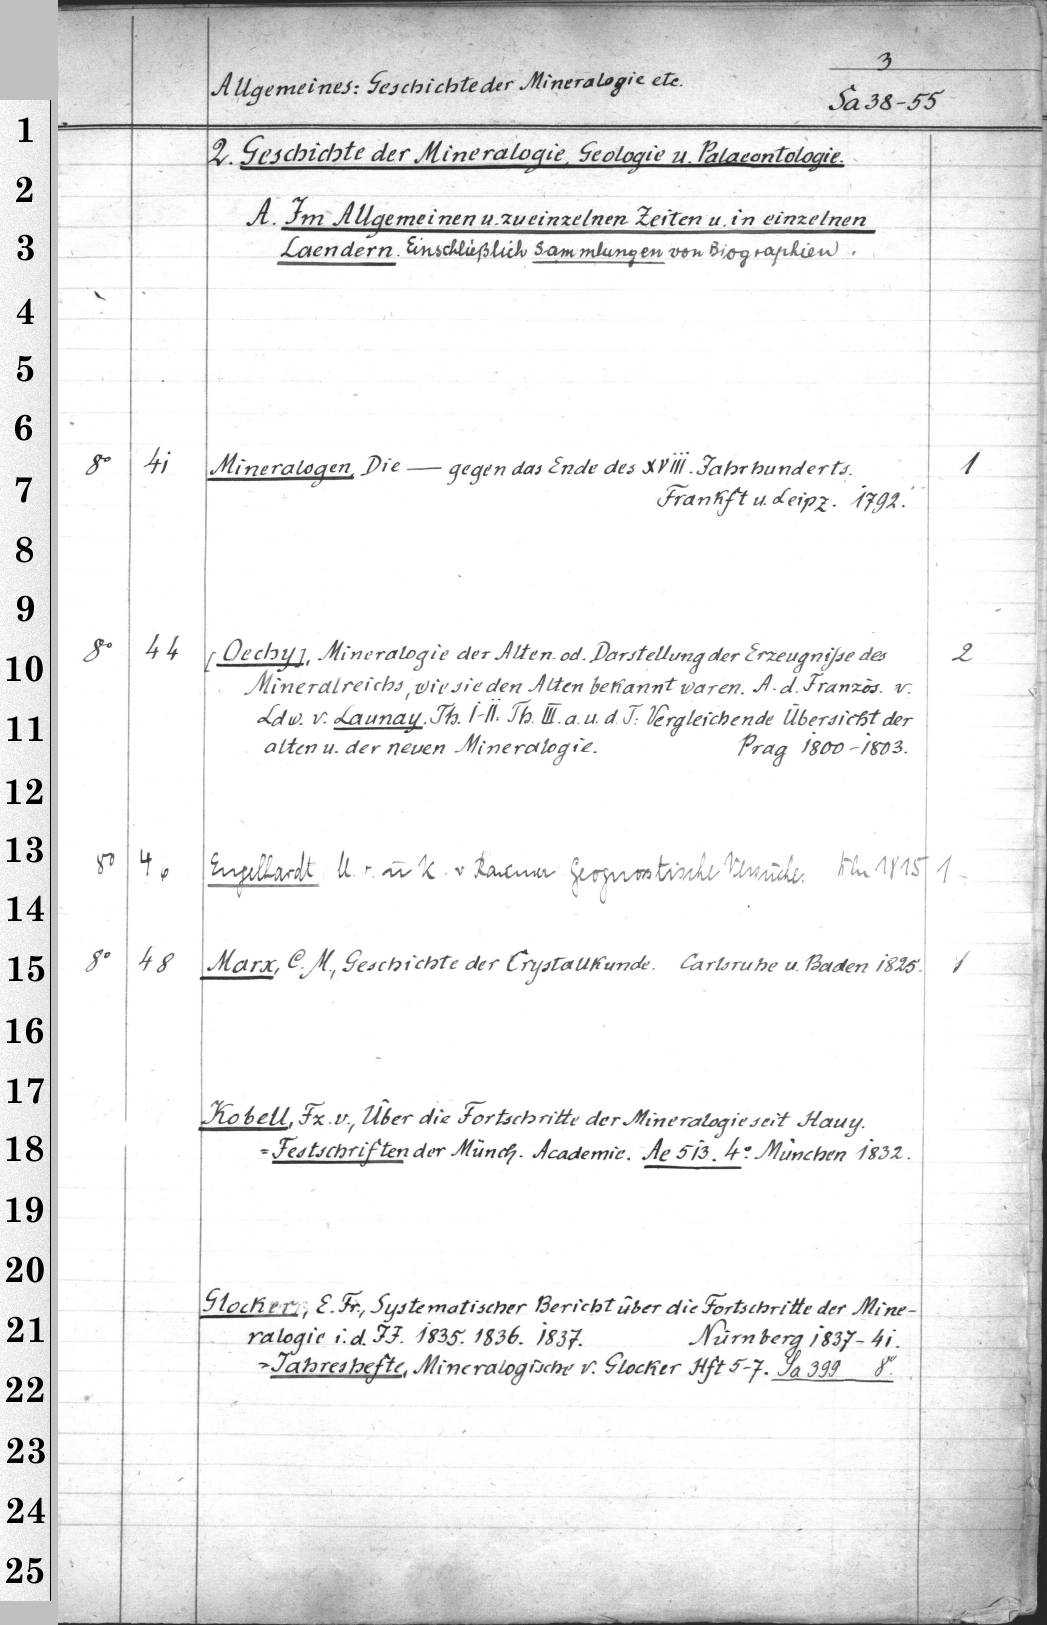 3
Allgemeines: Geschichte der Mineralogie etc.
Sa 38-55
1
2. Geschichte der Mineralogie, Geologie u. Palaeontologie.
2
A. Im Allgemeinen u. zu einzelnen Zeiten u. in einzelnen
3
Laendern. Einschließlich Sammlungen von Biographien.
4
5
6
8° 41 Mineralogen, Die — gegen das Ende des XVIII. Jahrhunderts. 1
7
Frankft u. Leipz. 1792.
8
9
8° 44 [Oechy], Mineralogie der Alten od. Darstellung der Erzeugniße des 2
10
Mineralreichs, wie sie den Alten bekannt waren. A. d. Französ. v.
Ldw. v. Launay. Th. I-II. Th. III. a. u. d. T: Vergleichende Übersicht der
11
alten u. der neuen Mineralogie. Prag 1800-1803.
12
13
8° 46 Engelhardt u. K. v Raumer Geognostische Versuche. 1815 1
14
8° 48 Marx, C. M., Geschichte der Crystallkunde. Carlsruhe u. Baden 1825. 1
15
16
17
Kobell, Fz. v., Über die Fortschritte der Mineralogie seit Hauy.
18
= Festschriften der Münch. Academie. Ae 513. 4° München 1832.
19
20
Glocker, E. Fr., Systematischer Bericht über die Fortschritte der Mine-
21
ralogie i. d. JJ. 1835. 1836. 1837. Nürnberg 1837-41.
= Jahreshefte, Mineralogische v. Glocker Hft 5-7. Sa 399 8°.
22
23
24
25